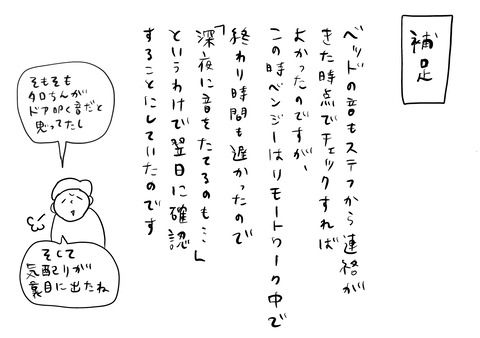 補足
ベッドの音もステフから連絡が
きた時点でチェックすれば
よかったのですが、
この時ベンジーはリモートワーク中で
終わり時間も遅かったので
「深夜に音をたてるのも…」
というわけで翌日に確認
することにしていたのです
そもそも
タロちんが
ドア叩く音だと
思ってたし
そして
気配りが
裏目に出たね